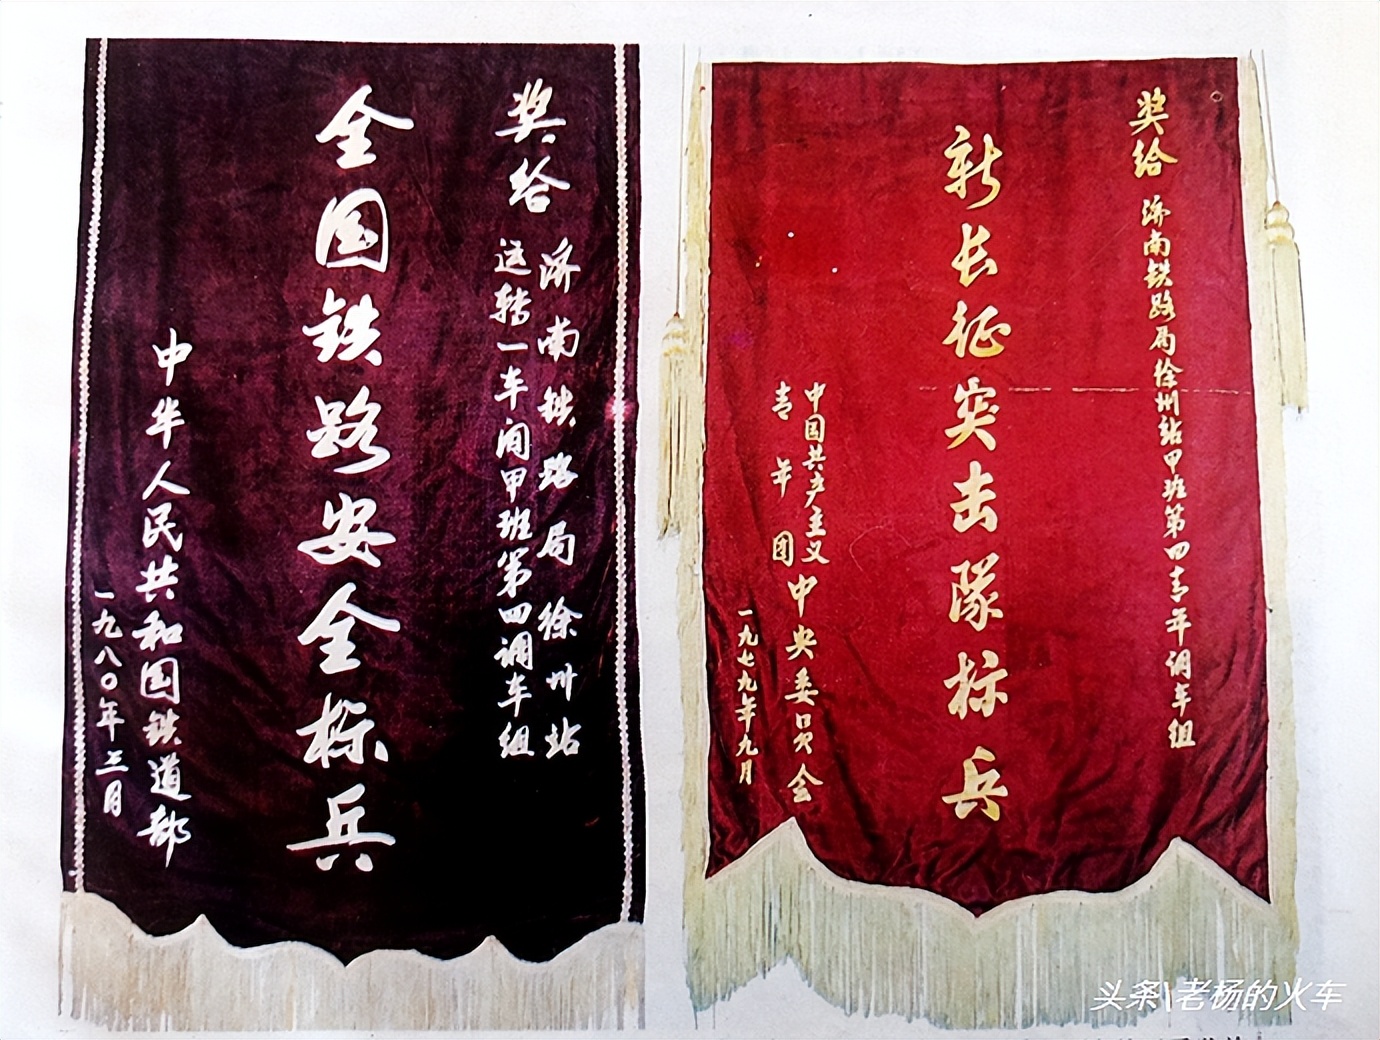 奖给
济南铁路局徐州站
运转一车间甲班第四调车组
全国铁路安全标兵
中华人民共和国铁道部
一九八〇年三月
奖给 济南铁路局徐州站甲班第四青年调车组
新长征突击隊标兵
中国共产主义
青年团
中央委员会
一九七九年九月
头条\老杨的火车